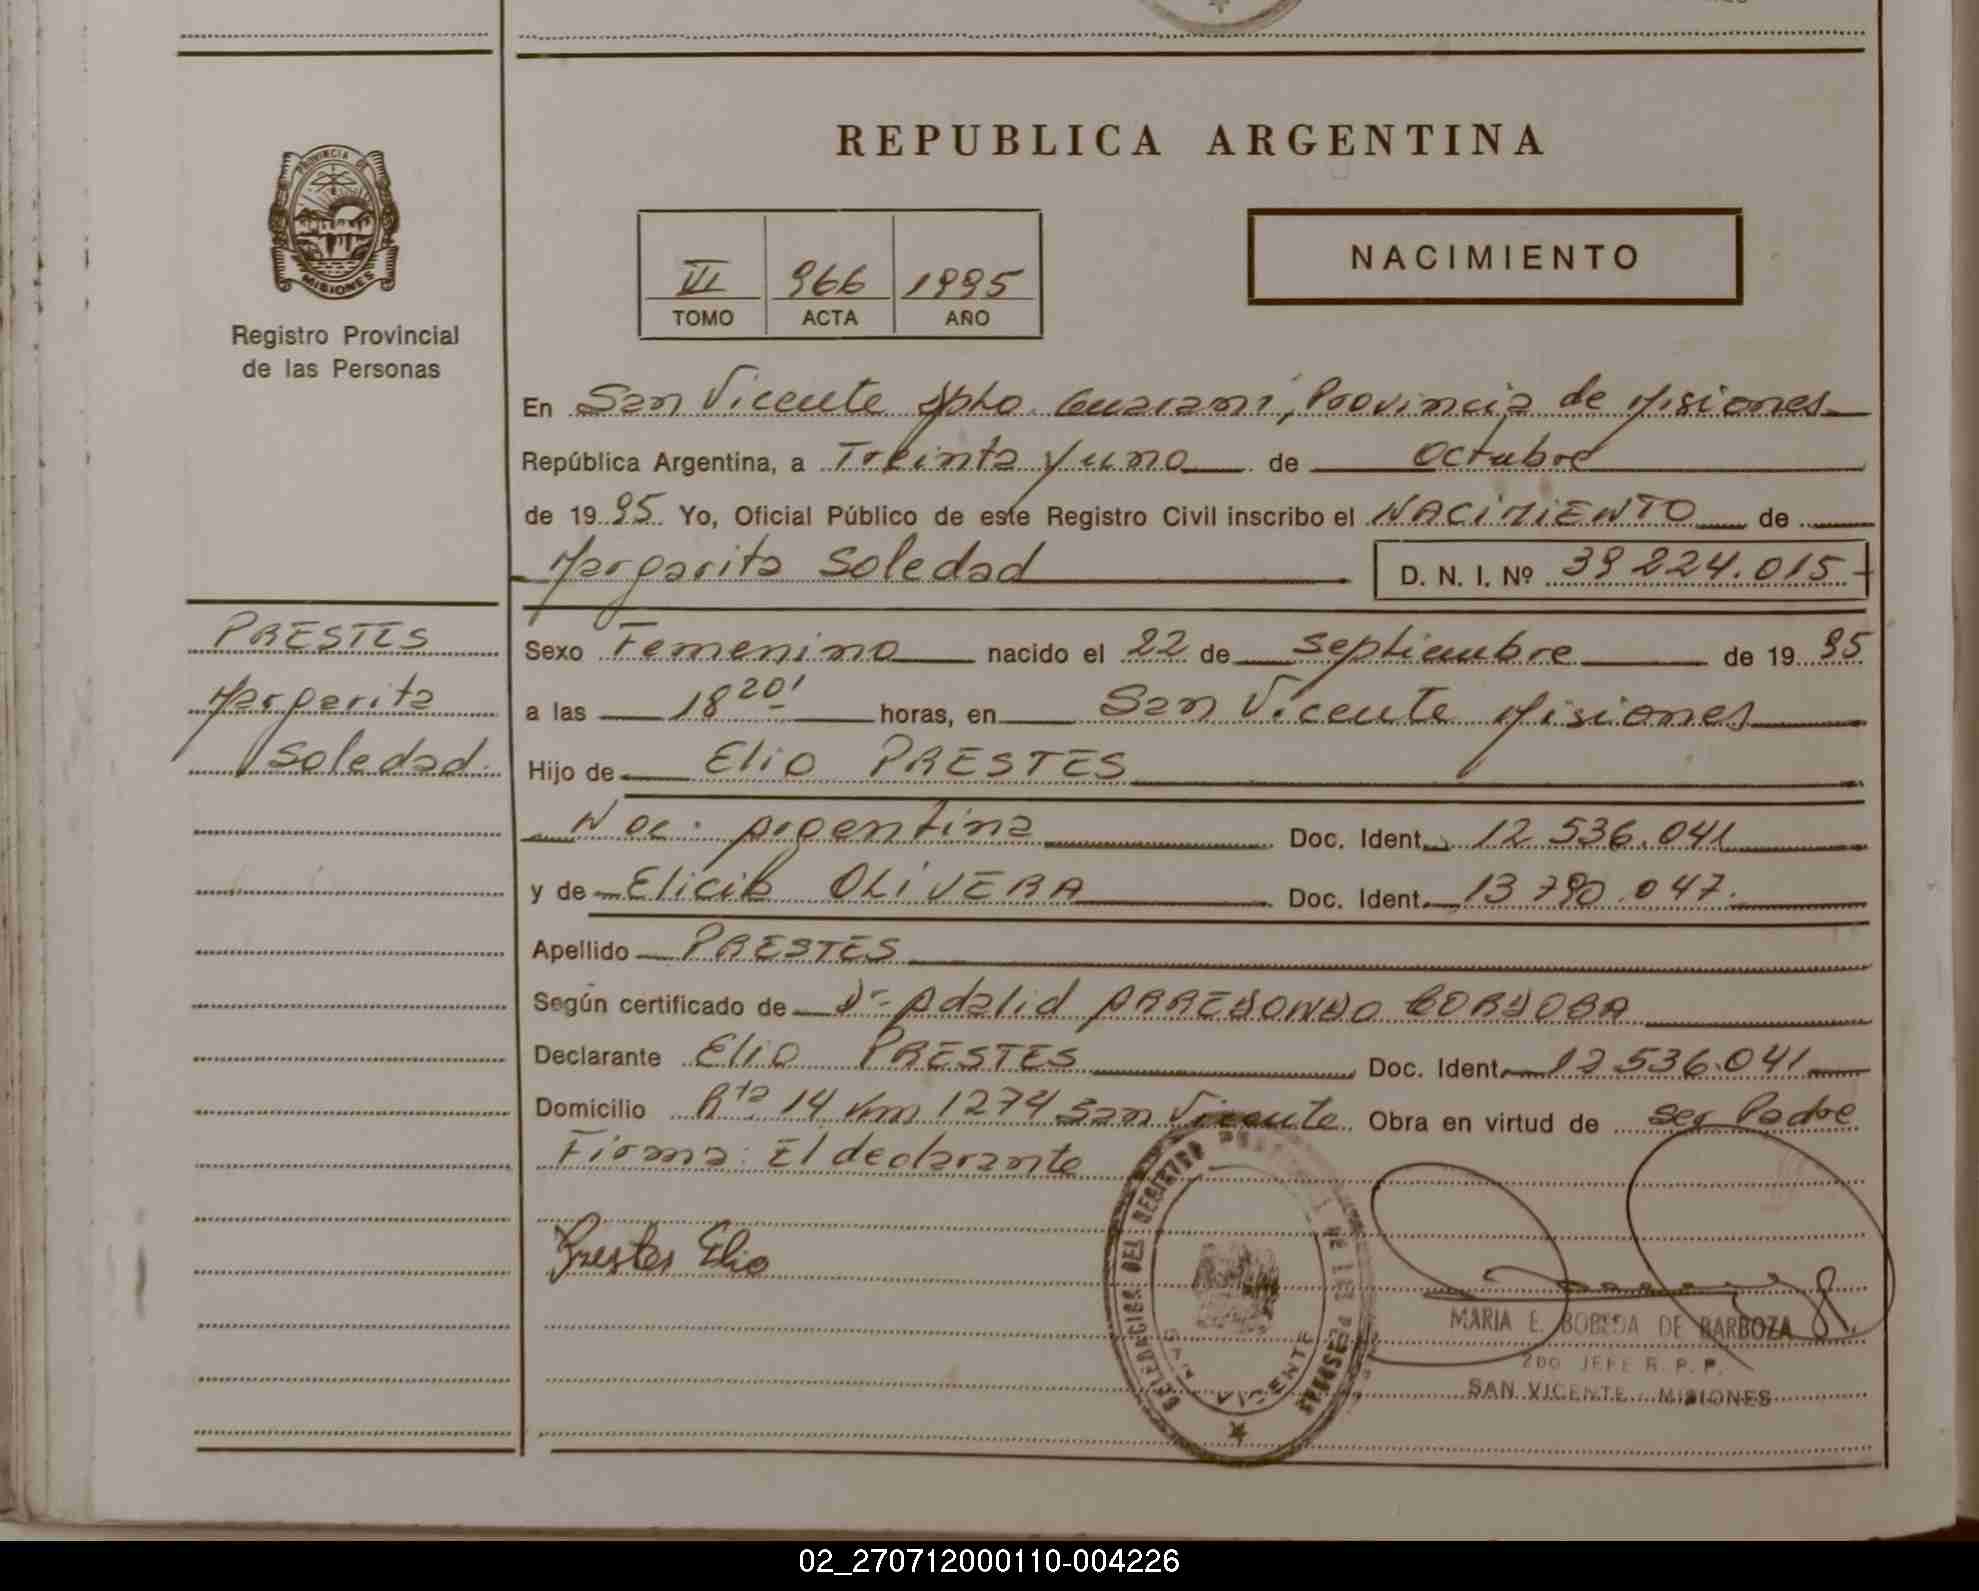 REPUBLICA ARGENTINA
PROVINCIA DE
MISIONES
Registro Provincial
de las Personas
VI 966 1995
TOMO ACTA AÑO
NACIMIENTO
En San Vicente Dpto. Guarani, Provincia de Misiones
República Argentina, a Treinta y uno de Octubre
de 1995 Yo, Oficial Público de este Registro Civil inscribo el NACIMIENTO de
Margarita Soledad D. N. I. Nº 39 224.015
PRESTES
Margarita
Soledad
Sexo Femenino nacido el 22 de Septiembre de 1995
a las 18 20' horas, en San Vicente Misiones
Hijo de Elio PRESTES
Nac. Argentina Doc. Ident. 12 536.041
y de Elicia OLIVERA Doc. Ident. 13 790.047.
Apellido PRESTES
Según certificado de Dr. Adalid ARREDONDO CORDOBA
Declarante Elio PRESTES Doc. Ident. 12 536.041
Domicilio Rta 14 Km 1274 San Vicente Obra en virtud de ser Padre
Firma: El declarante
Prestes Elio
DELEGACION DEL REGISTRO DE LAS PERSONAS
SAN VICENTE
MARIA E. BOBEDA DE BARBOZA
2DO JEFE R. P. P.
SAN VICENTE MISIONES
02_270712000110-004226